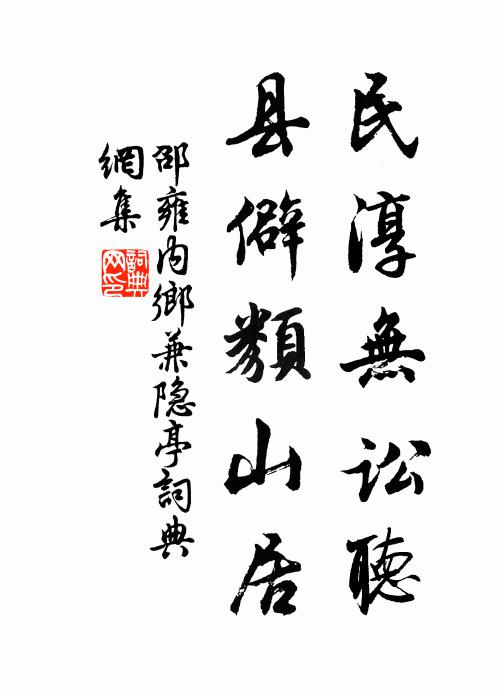 民淳無訟聽
县僻類山居
邵雍内鄉兼隐亭詞典
網集
詞典
网印